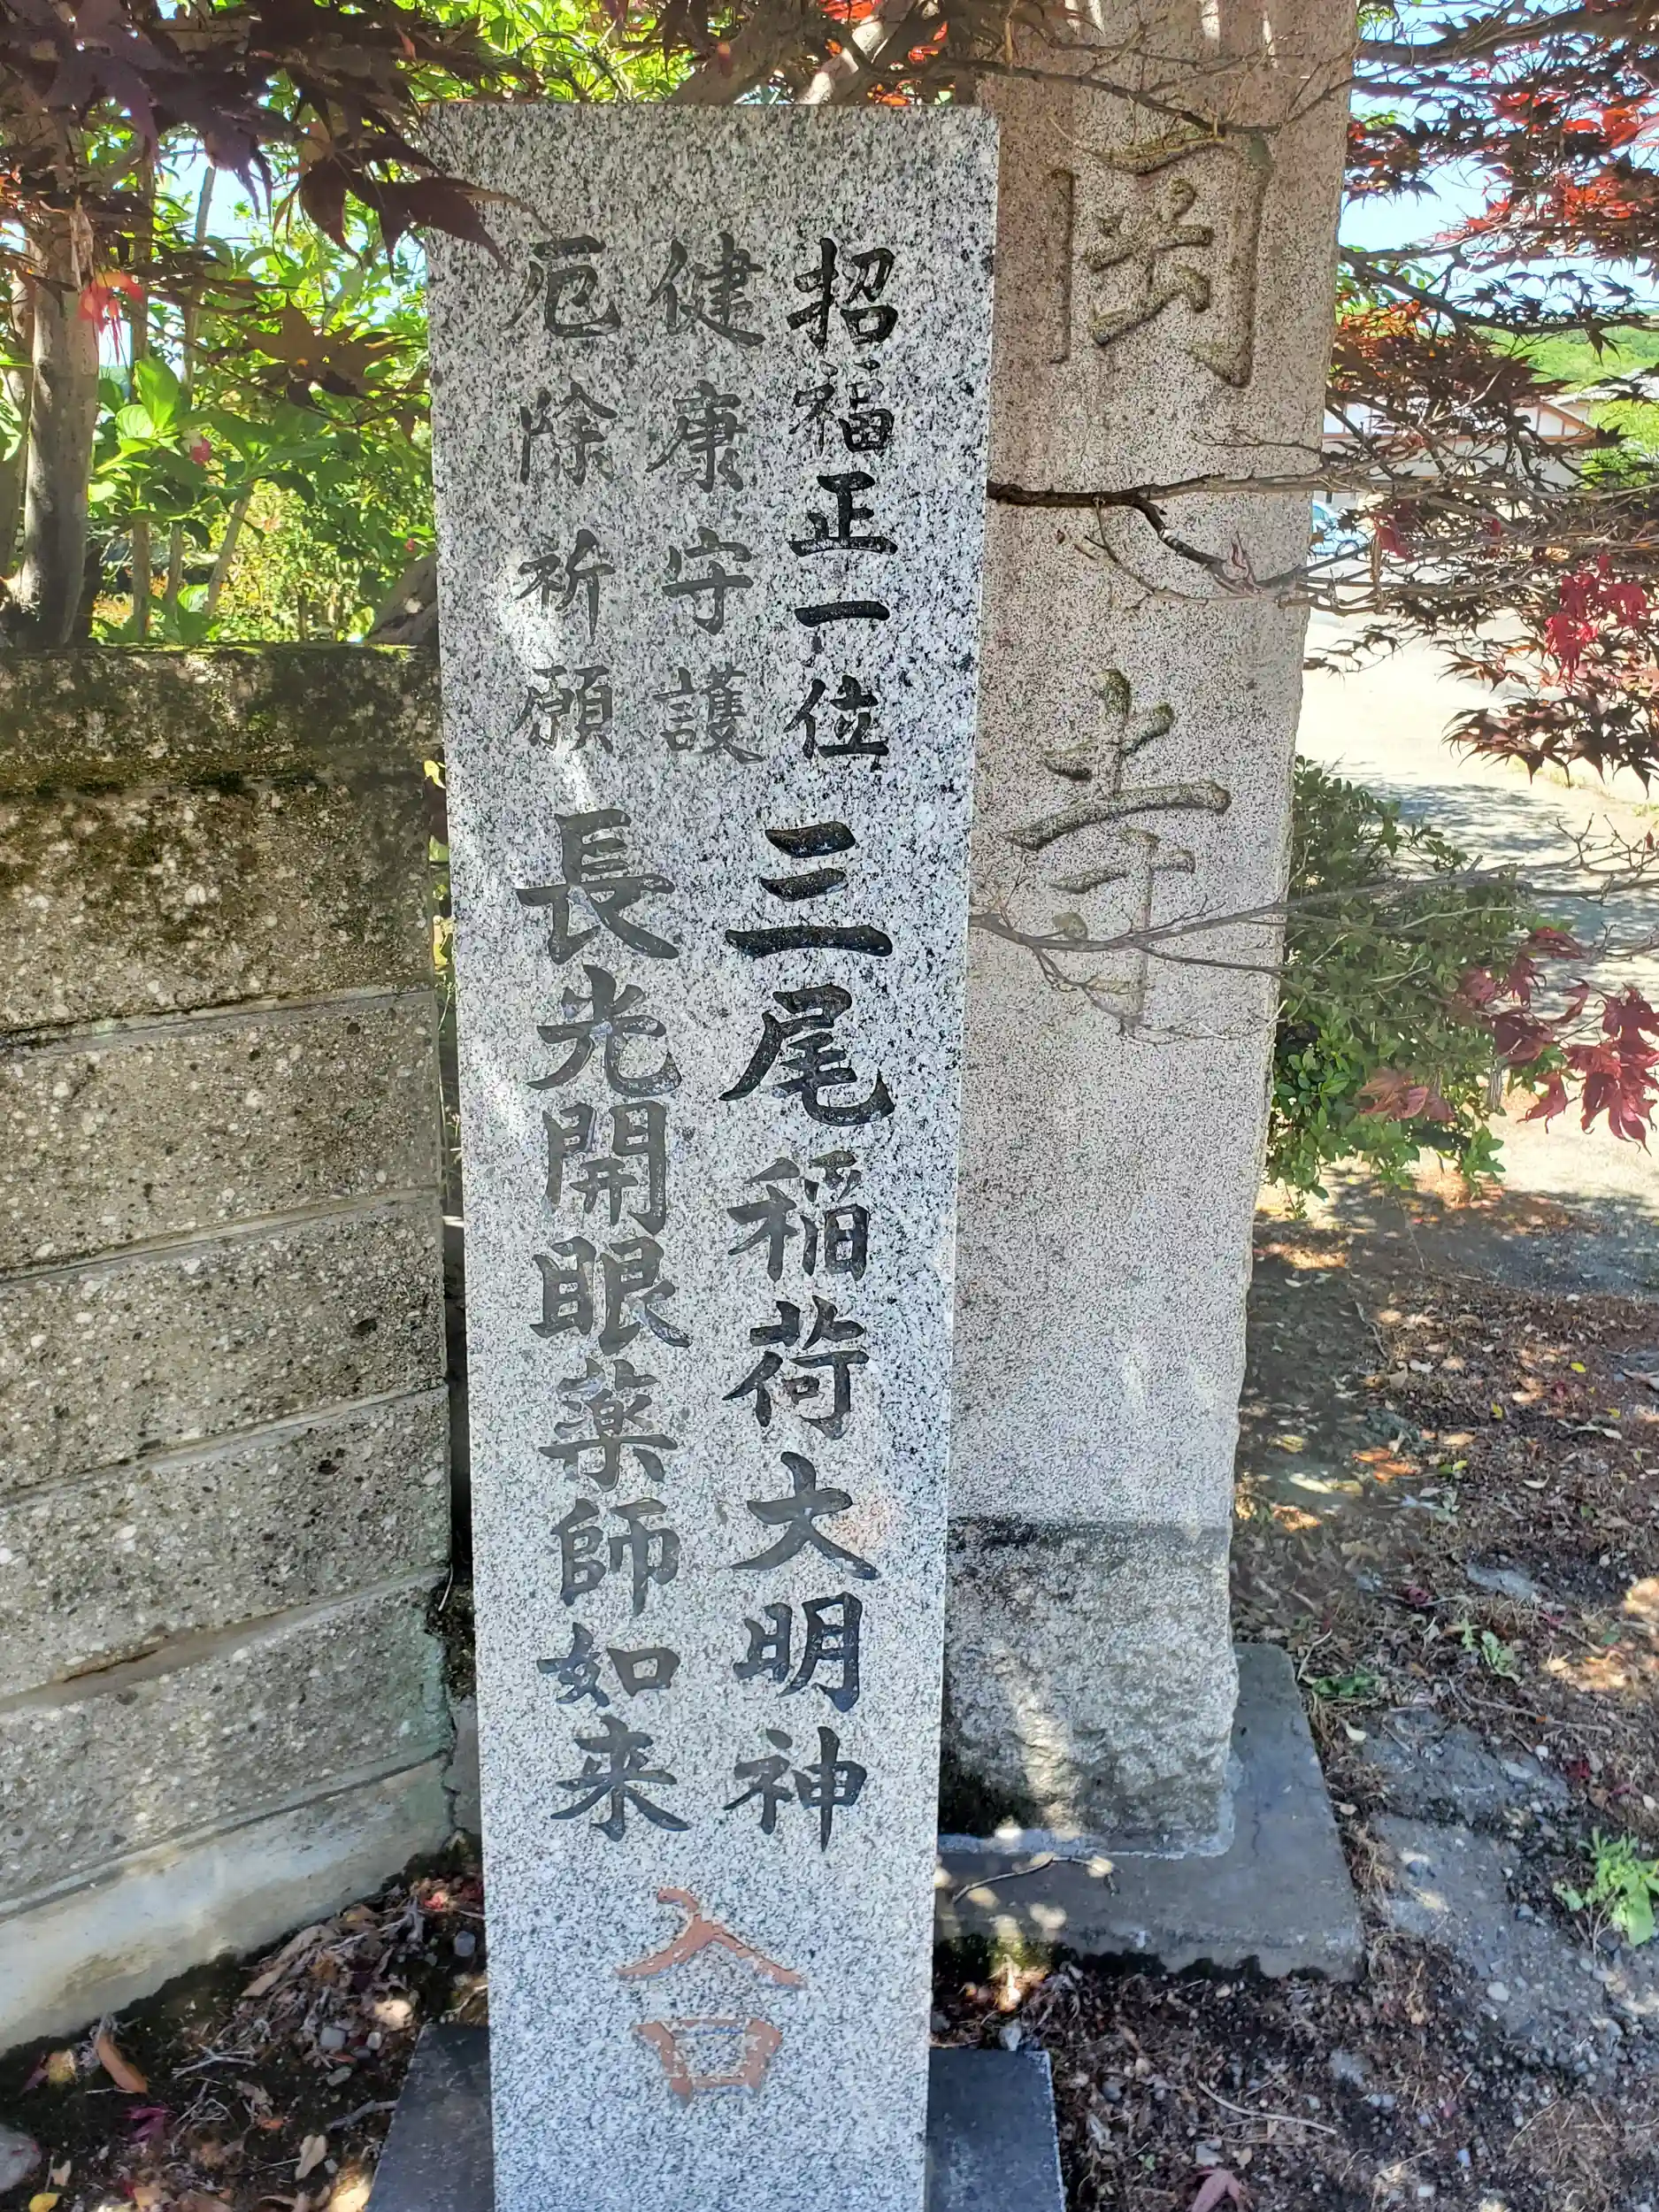 岡寺
招福正一位三尾稲荷大明神
健康守護
厄除祈願
長光開眼薬師如来
入口